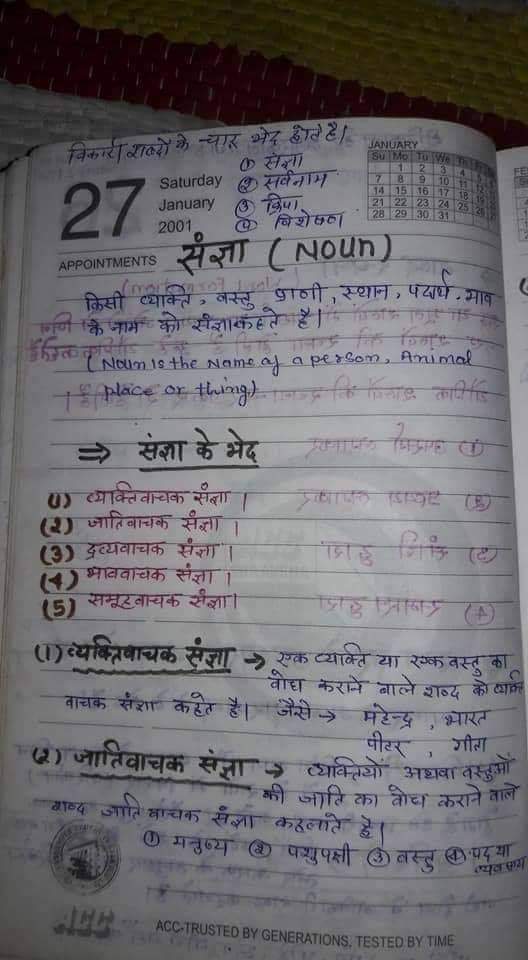 विकारी शब्दों के चार भेद होते है।
① संज्ञा
② सर्वनाम
③ क्रिया
④ विशेषण
27
Saturday
January
2001
JANUARY
Su Mo Tu We Th
1 2 3 4
7 8 9 10 11 12
14 15 16 17 18 19
21 22 23 24 25 26
28 29 30 31
APPOINTMENTS
संज्ञा (Noun)
किसी व्यक्ति, वस्तु प्राणी, स्थान, पदार्थ, भाव
के नाम को संज्ञा कहते है।
(Noun is the Name of a person, Animal
place or thing)
⇒ संज्ञा के भेद
(1) व्यक्तिवाचक संज्ञा।
(2) जातिवाचक संज्ञा।
(3) द्रव्यवाचक संज्ञा।
(4) भाववाचक संज्ञा।
(5) समूहवाचक संज्ञा।
(1) व्यक्तिवाचक संज्ञा → एक व्यक्ति या एक वस्तु का
बोध कराने वाले शब्द को व्यक्ति
वाचक संज्ञा कहते है। जैसे → महेन्द्र, भारत
पीटर, गीता
(2) जातिवाचक संज्ञा → व्यक्तियों अथवा वस्तुओं
की जाति का बोध कराने वाले
शब्द जाति वाचक संज्ञा कहलाते है।
① मनुष्य ② पशुपक्षी ③ वस्तु ④ पद या
व्यवसाय
ACC-TRUSTED BY GENERATIONS, TESTED BY TIME